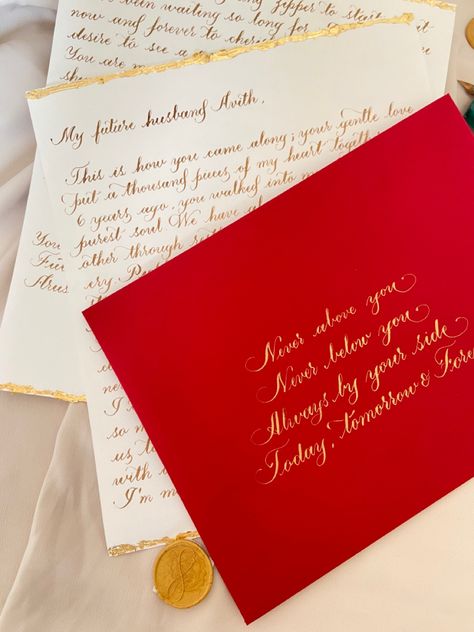 been waiting so long for
now and forever to cherish
desire to see a
You are m
My future husband Avith,
This is how you came along; your gentle love
put a thousand pieces of my heart together
6 years ago, you walked into m
purest soul We have al
other through
ery
I
so m
us to
with
I'm m
You
Fu
Arus
Never above you
Never below you
Always by your side
Today, tomorrow & Fore